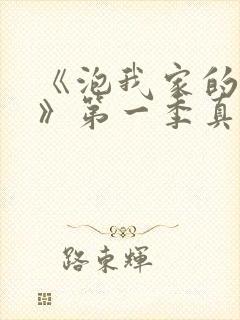 《泡我家的
》第一季真
路東輝